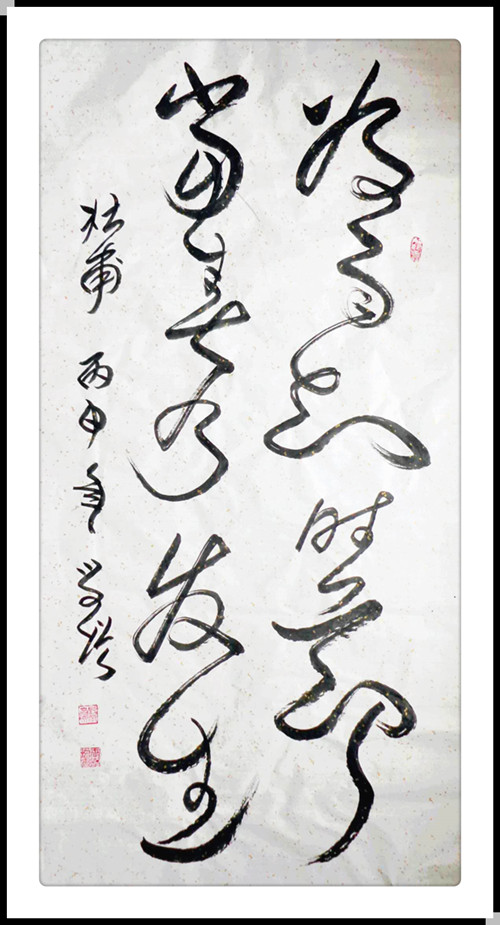 好雨知时節
當春乃发生
杜甫 丙申年